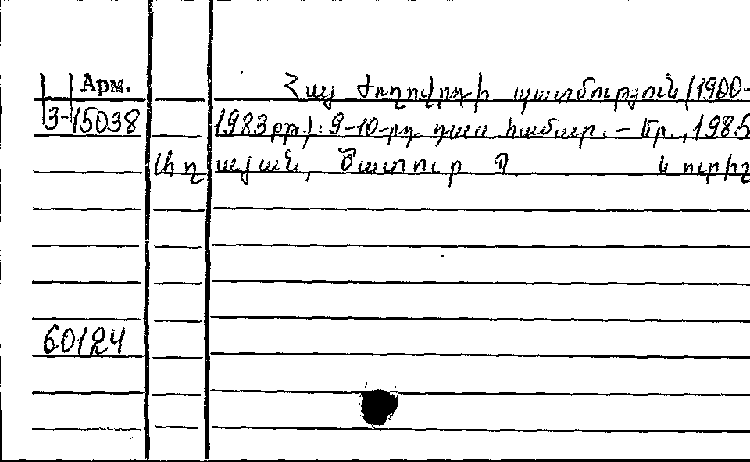 Арм.
Հայ ժողովրդի պատմություն (1900-
3-15038
1983 թթ.): 9-10-րդ դաս. համար. – Եր., 1985
Աղայան, Ծատուր Պ. և ուրիշ
60124